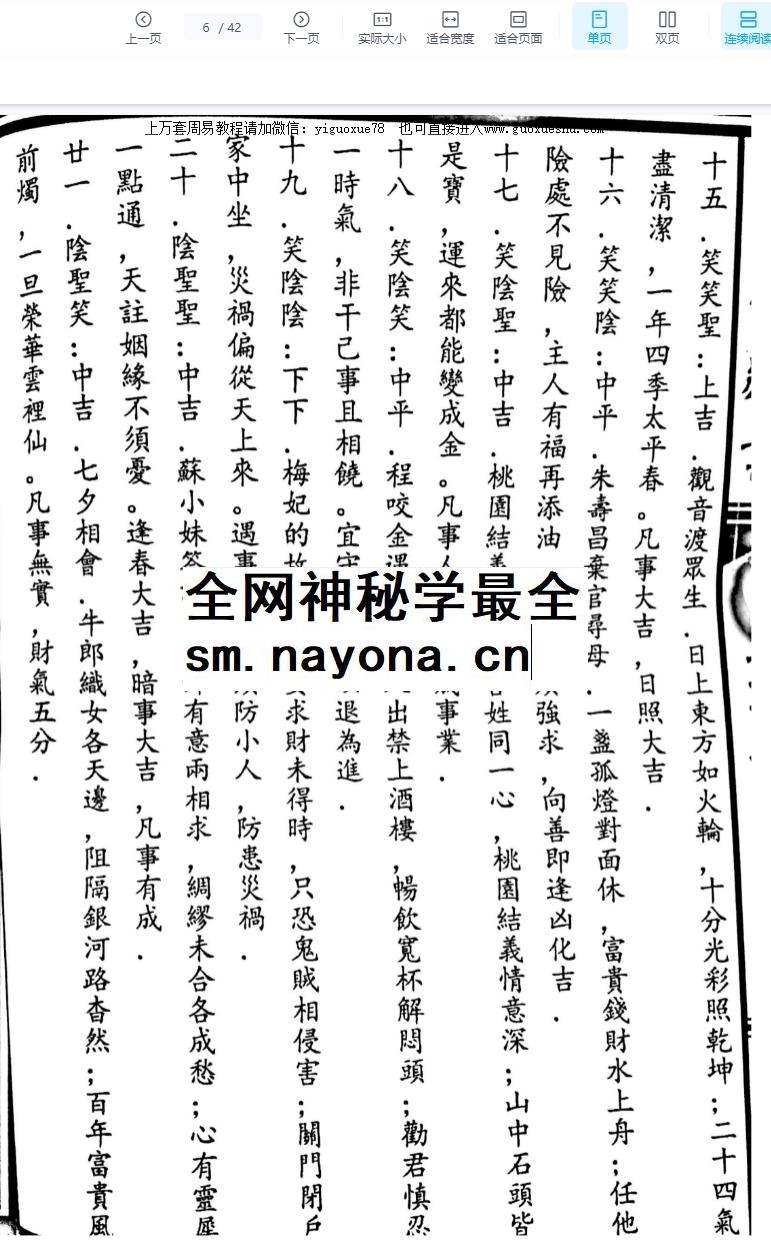 上一页
6 / 42
下一页
1:1
实际大小
适合宽度
适合页面
单页
双页
连续阅读
上万套周易教程请加微信：yiguoxue78 也可直接进入www.guoxueshu.com
十五．笑笑聖：上吉．觀音渡眾生．日上東方如火輪，十分光彩照乾坤；二十四氣
盡清潔，一年四季太平春。凡事大吉，日照大吉．
十六．笑笑陰：中平．朱壽昌棄官尋母．一盞孤燈對面休，富貴錢財水上舟；任他
險處不見險，主人有福再添油 強求，向善即逢凶化吉．
十七．笑陰聖：中吉．桃園結義 姓同一心，桃園結義情意深；山中石頭皆
是寶，運來都能變成金。凡事 事業．
十八．笑陰笑：中平．程咬金 出禁上酒樓，暢飲寬杯解悶頭；勸君慎忍
一時氣，非干己事且相饒。宜守 退為進．
十九．笑陰陰：下下．梅妃的故 求財未得時，只恐鬼賊相侵害；關門閉戶
家中坐，災禍偏從天上來。遇事 防小人，防患災禍．
二十．陰聖聖：中吉．蘇小妹答 有意兩相求，綢繆未合各成愁；心有靈犀
一點通，天註姻緣不須憂。逢春大吉，暗事大吉，凡事有成．
廿一．陰聖笑：中吉．七夕相會．牛郎織女各天邊，阻隔銀河路杳然；百年富貴風
前燭，一旦榮華雲裡仙。凡事無實，財氣五分．
全网神秘学最全
sm.nayona.cn